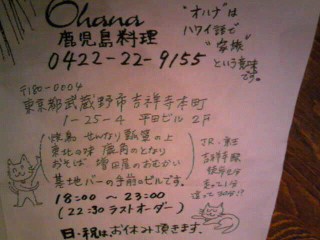 Ohana
鹿児島料理
0422-22-9155
"オハナ"は
ハワイ語で
"家族"
という意味
です。
〒180-0004
東京都武蔵野市吉祥寺本町
1-25-4 平田ビル 2F
焼鳥 せんなり瓢箪の上
東北の味 鹿角のとなり
おそば 増田屋のおむかい
基地バーの手前のビルです。
18:00 ～ 23:00
(22:30 ラストオーダー)
日・祝はお休み頂きます。
JR・東王
吉祥寺駅